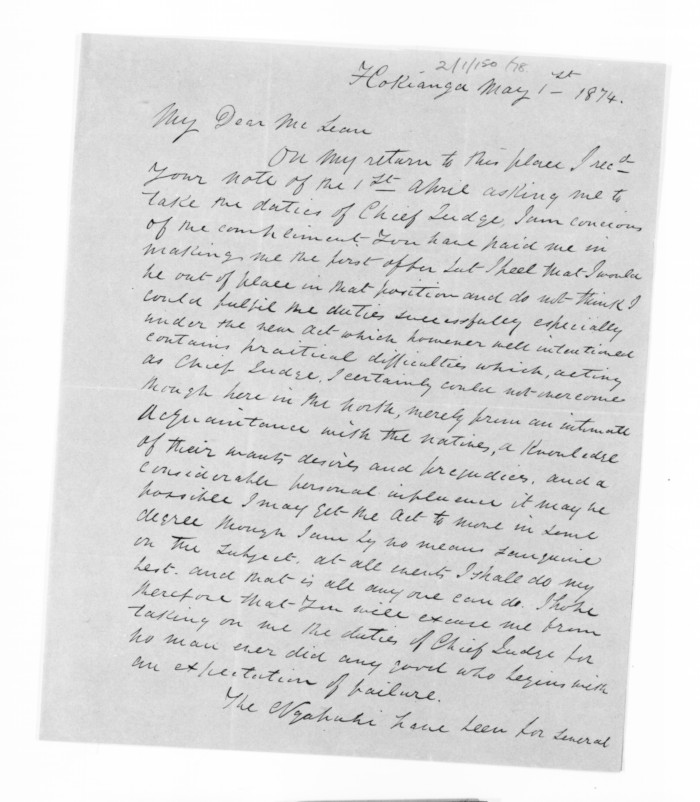 2/1/150/78
Hokianga May 1st 1874.
My Dear McLean
On my return to this place I recd
Your note of the 1st April asking me to
take the duties of Chief Judge, I am concious
of the compliment You have paid me in
making me the first offer but I feel that I would
be out of place in that position and do not think I
could fulfil the duties successfully especially
under the new Act which however well intentioned
contains practical difficulties which, acting
as Chief Judge, I certainly could not overcome
though here in the north, merely from an intimate
Acquaintance with the natives, a Knowledge
of their wants desires and prejudices, and a
considerable personal influence it may be
possible I may get the Act to move in some
degree though I am by no means sanguine
on the subject. at all events I shall do my
best. and that is all any one can do. I hope
therefore that You will excuse me from
taking on me the duties of Chief Judge for
no man ever did any good who begins with
an expectation of failure.
The Ngapuhi have been for several